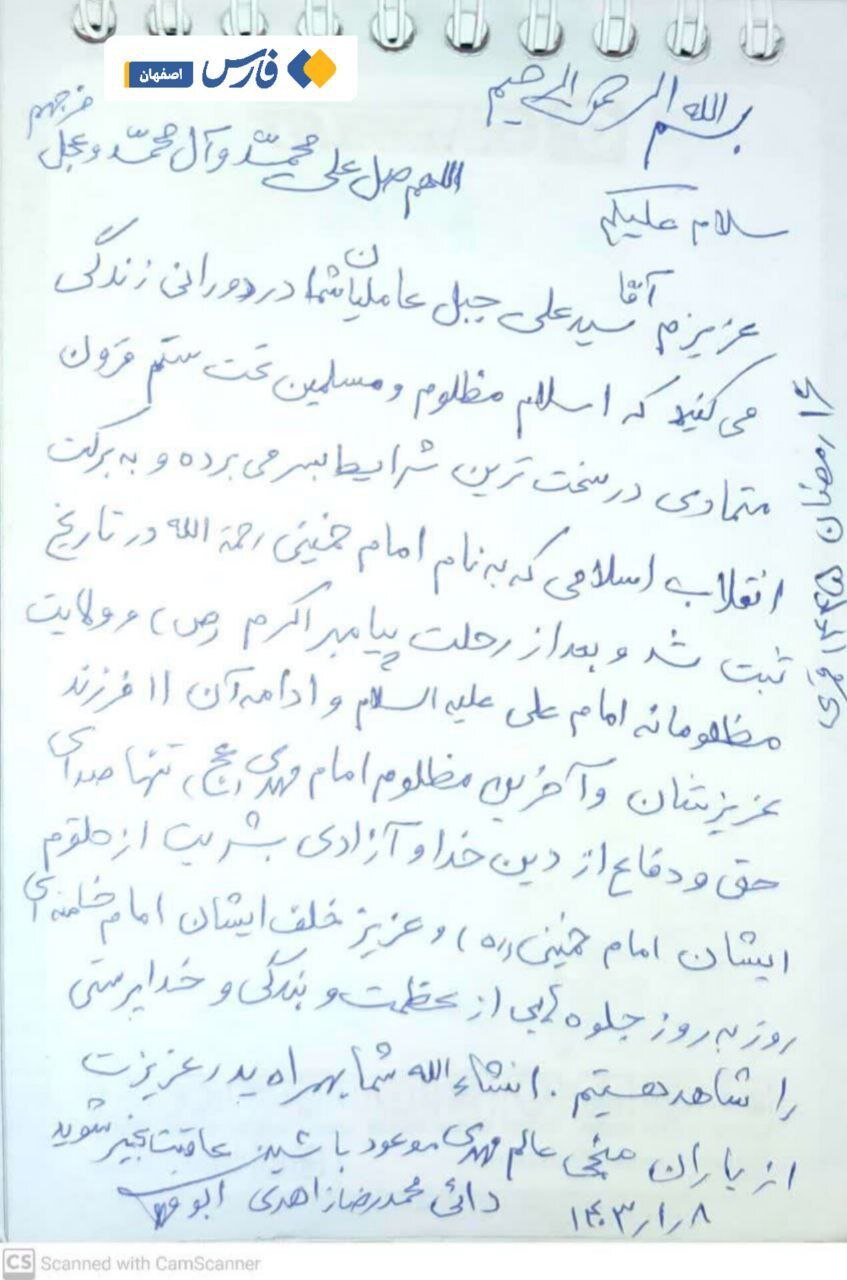 فارس
اصفهان
بسم الله الرحمن الرحیم
اللهم صل علی محمد و آل محمد و عجل فرجهم
سلام علیکم
عزیزم آقا سید علی جبل عاملیان شما در دورانی زندگی
می کنید که اسلام مظلوم و مسلمین تحت ستم قرون
متمادی در سخت ترین شرایط بسر می برده و به برکت
انقلاب اسلامی که به نام امام خمینی رحمة الله در تاریخ
ثبت شد و بعد از رحلت پیامبر اکرم (ص) و ولایت
مظلومانه امام علی علیه السلام و ادامه آن ۱۱ فرزند
عزیزشان و آخرین مظلوم امام مهدی (عج) تنها صدای
حق و دفاع از دین خدا و آزادی بشریت از حلقوم
ایشان امام خمینی (ره) و عزیز خلف ایشان امام خامنه ای
روز به روز جلوه ایی از عظمت و بندگی و خداپرستی
را شاهد هستیم . انشاء الله شما بهمراه پدر عزیزت
از یاران منجی عالم مهدی موعود باشید عاقبت بخیر شوید
دائی محمدرضا زاهدی ابو
۱۴۰۳/۱/۸
۱۶ رمضان ۱۴۴۵ قمری
CS Scanned with CamScanner